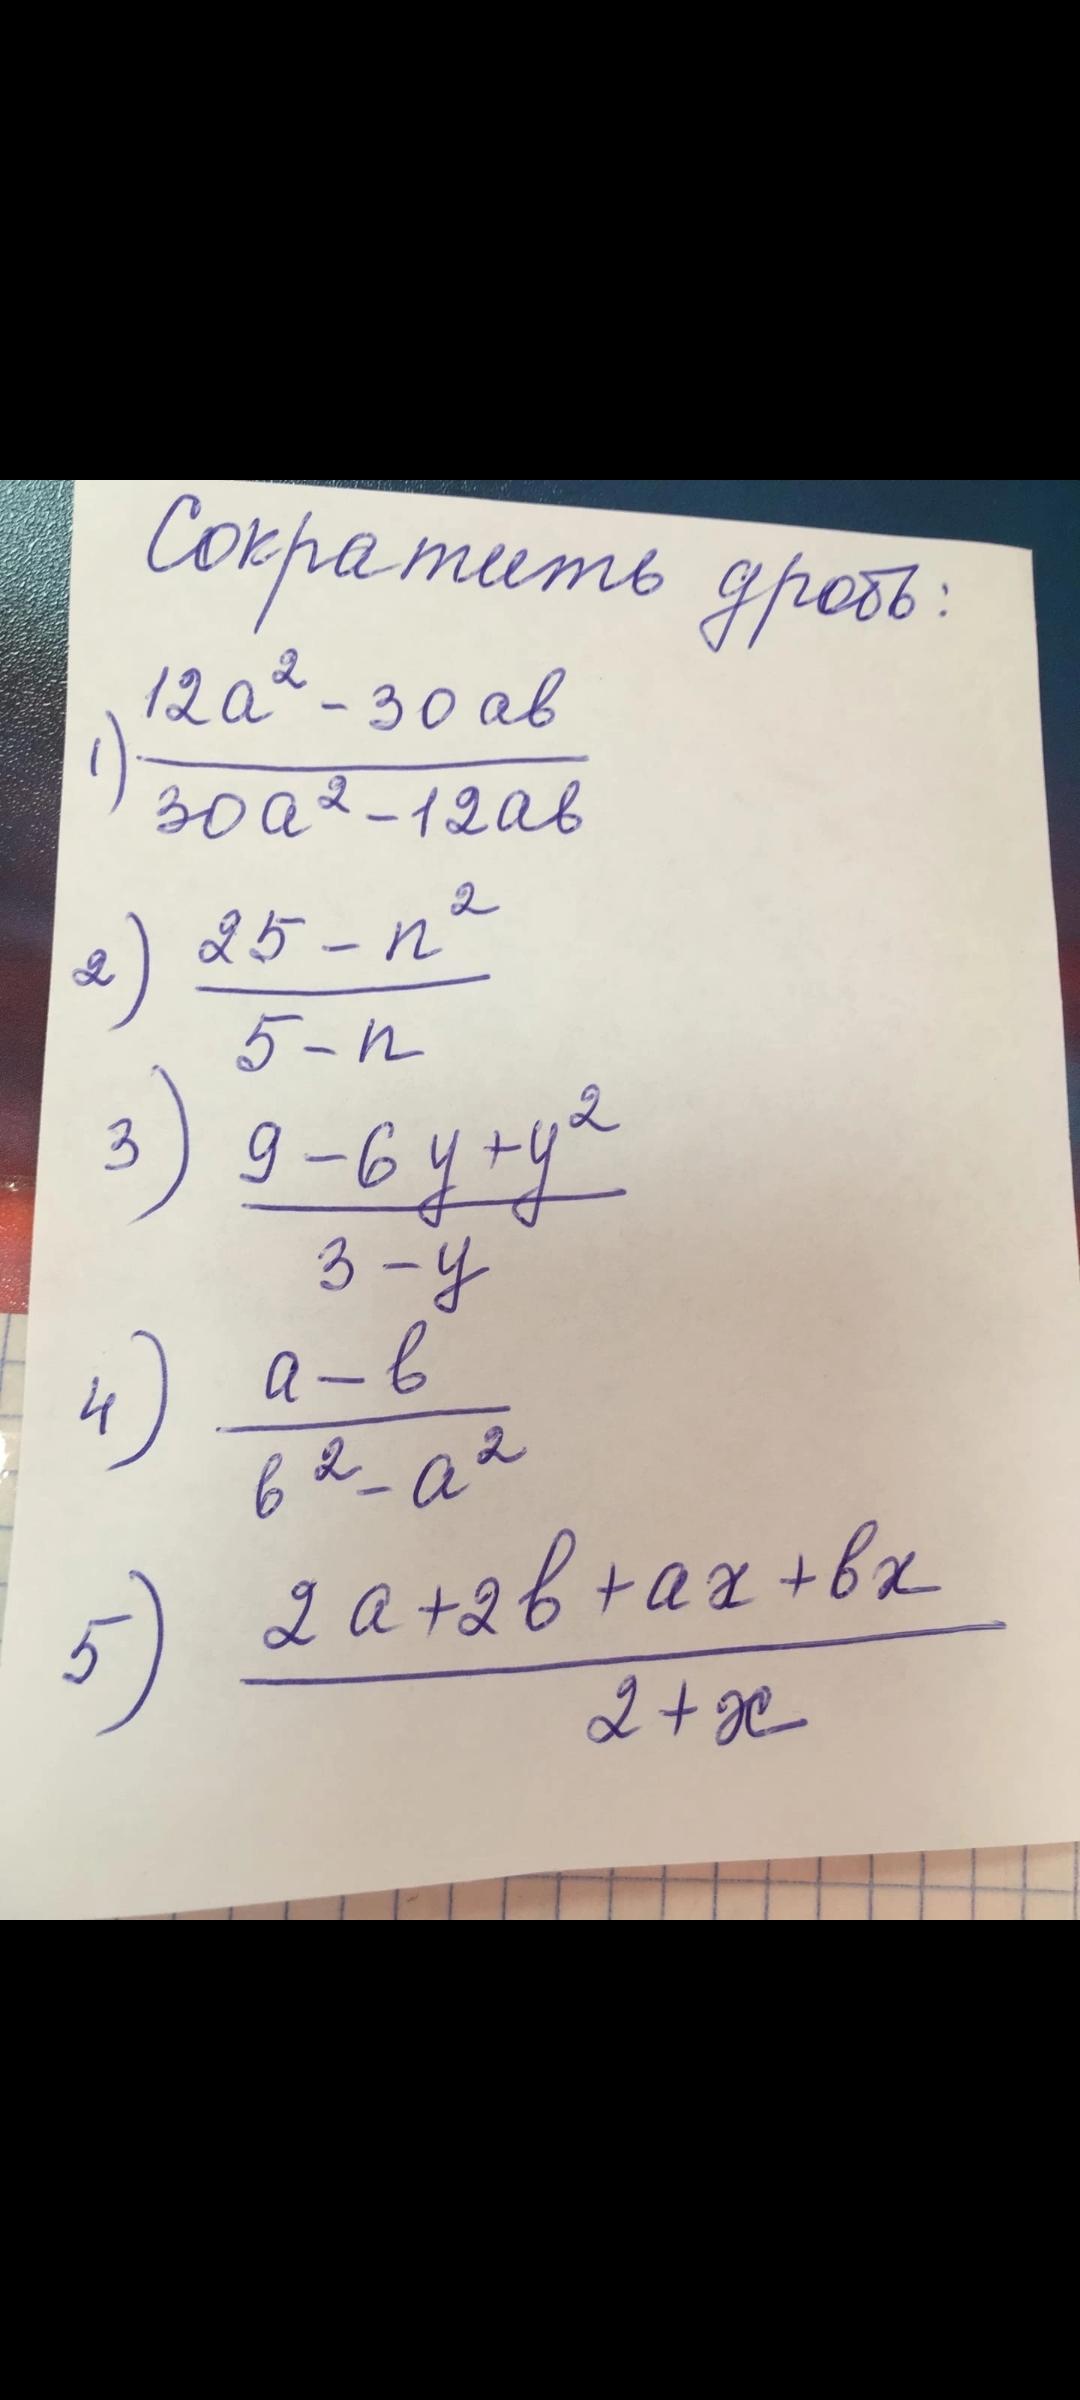 Сократить дробь:
1) \frac{12a^2 - 30ab}{30a^2 - 12ab}
2) \frac{25 - n^2}{5 - n}
3) \frac{9 - 6y + y^2}{3 - y}
4) \frac{a - b}{b^2 - a^2}
5) \frac{2a + 2b + ax + bx}{2 + x}